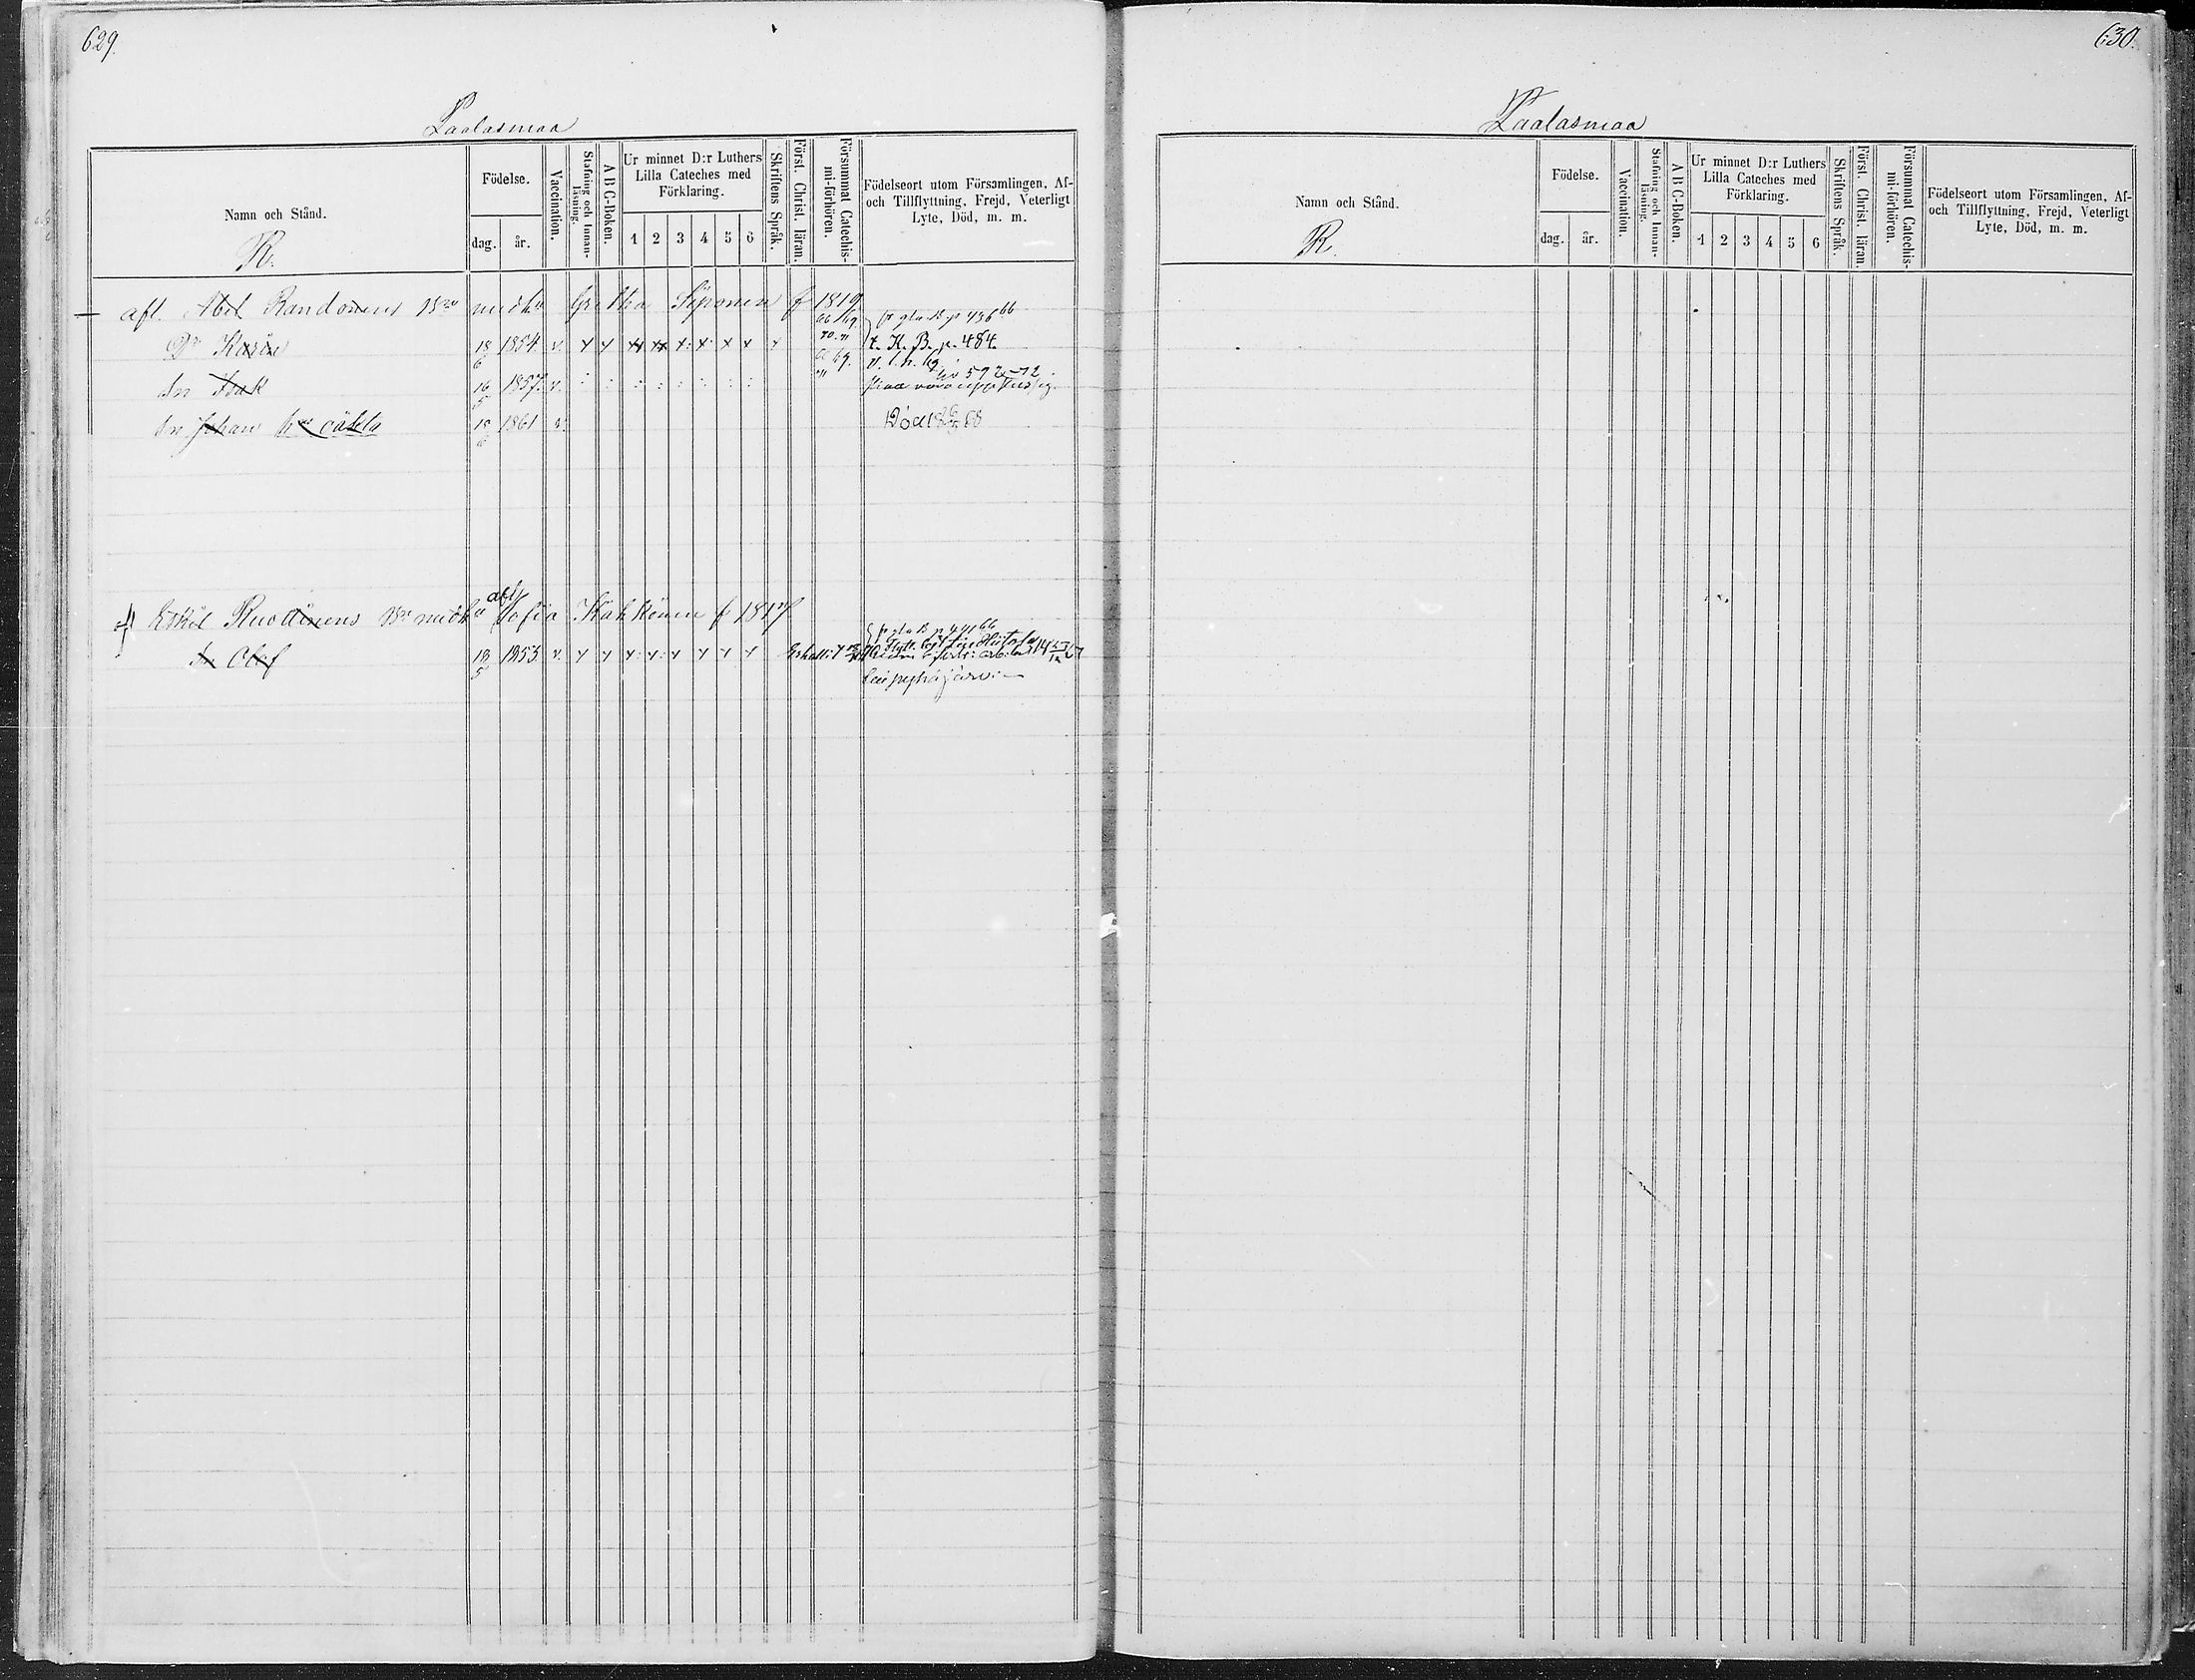 629.
Laalasmaa
Namn och Stånd.
R.
Födelse.
dag.
år.
Vaccination.
Stafning och Innan-
läsning.
A B C-Boken.
Ur minnet D:r Luthers
Lilla Cateches med
Förklaring.
1 2 3 4 5 6
Skriftens Språk.
Först. Christ. läran.
Försummat Catechis-
mi-förhören.
Födelseort utom Församlingen, Af-
och Tillflyttning, Frejd, Veterligt
Lyte, Död, m. m.
afl. Abel Randonens Brn med hu Gretha Siponen f 1819
Dr Karin 18/6 1854. v. K. B. p. 484.
Sn Isak 16/5 1857. v.
Sn Johan 18/6 1861 v. Död 68
Eskil Ruottinens Brn med hu afl. Sofia Kahkönen f 1817
Sn Olof 18/5 1853. v.
630.
Laalasmaa
Namn och Stånd.
R.
Födelse.
dag. år.
Vaccination.
Stafning och Innan-
läsning.
A B C-Boken.
Ur minnet D:r Luthers
Lilla Cateches med
Förklaring.
1 2 3 4 5 6
Skriftens Språk.
Först. Christ. läran.
Försummat Catechis-
mi-förhören.
Födelseort utom Församlingen, Af-
och Tillflyttning, Frejd, Veterligt
Lyte, Död, m. m.